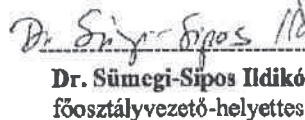 Dr. Sümegi-Sipos Ild
Dr. Sümegi-Sipos Ildikó
főosztályvezető-helyettes